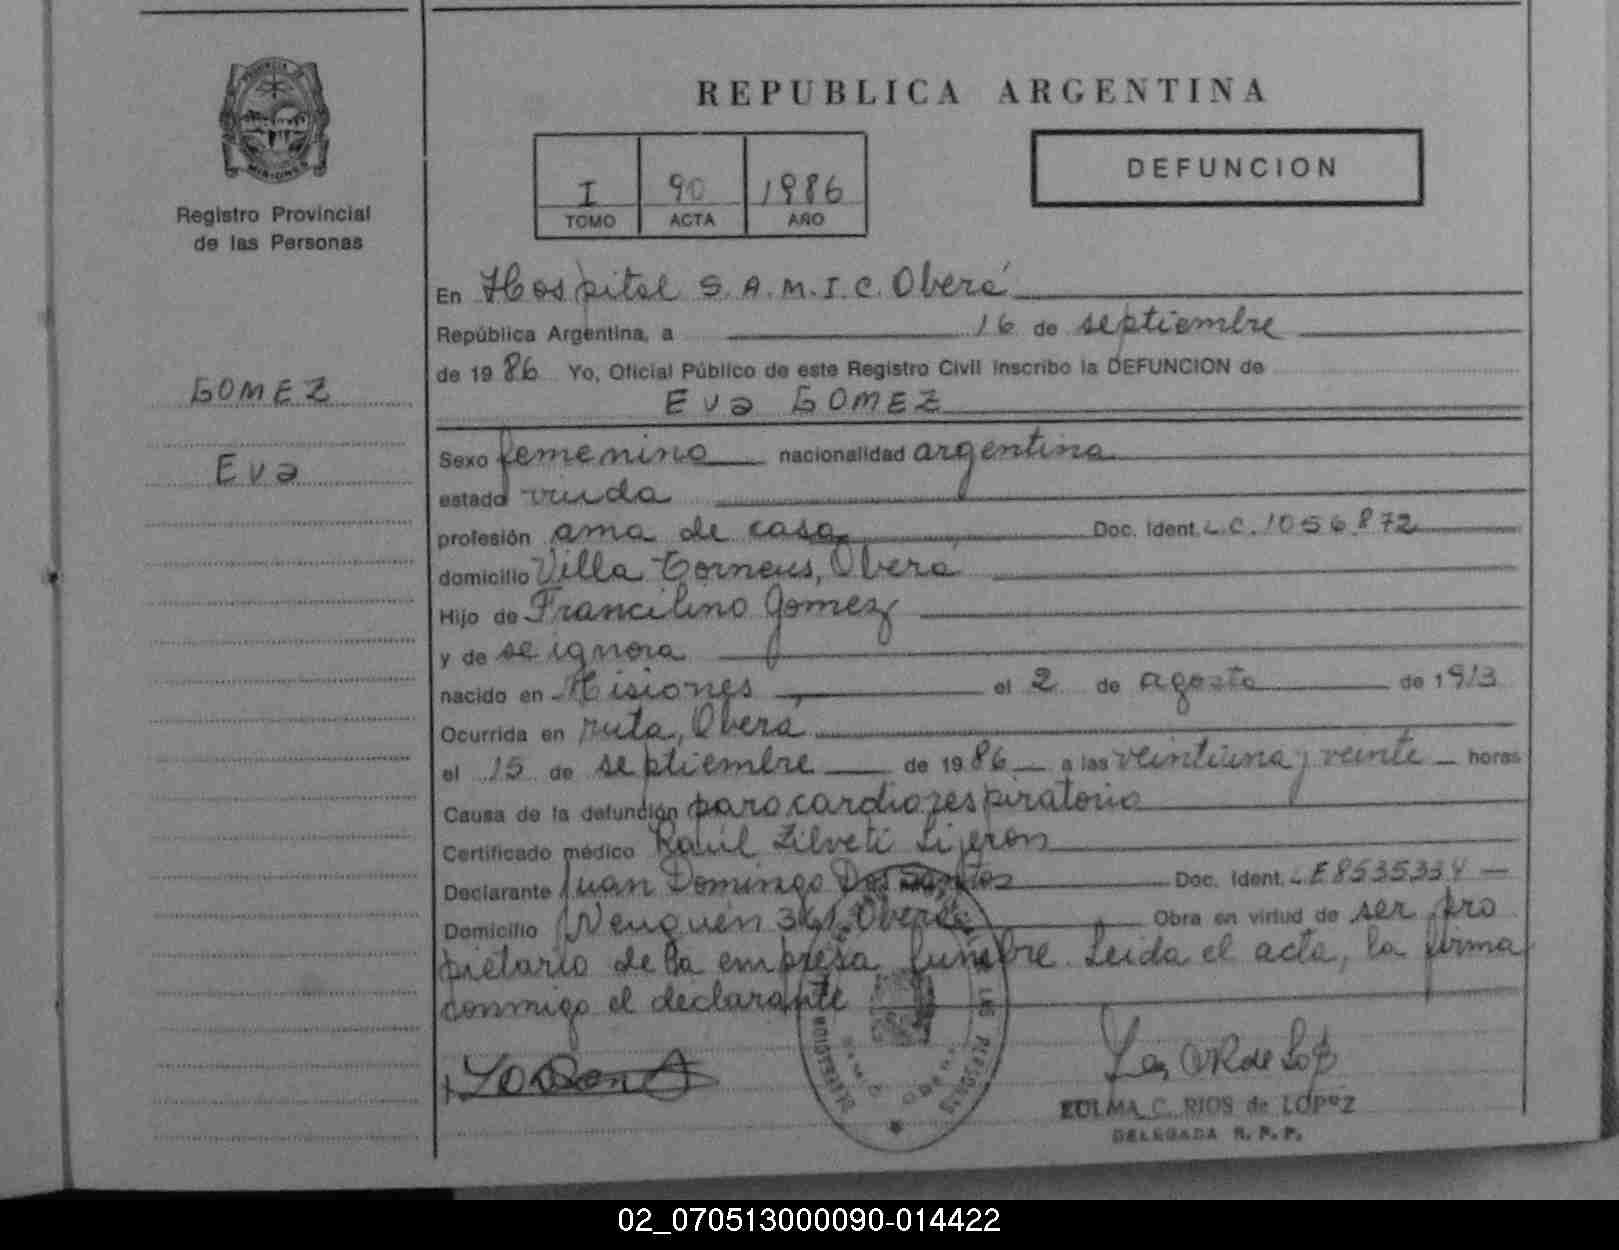 PROVINCIA DE
MISIONES
Registro Provincial
de las Personas
GOMEZ
Eva
REPUBLICA ARGENTINA
I 90 1986
TOMO ACTA AÑO
DEFUNCION
En Hospital S.A.M.I.C. Oberá
República Argentina, a 16 de septiembre
de 1986 Yo, Oficial Público de este Registro Civil inscribo la DEFUNCION de
Eva GOMEZ
Sexo femenino nacionalidad argentina
estado viuda
profesión ama de casa Doc. Ident. L.C. 1056.872
domicilio Villa Torneus, Oberá
Hijo de Francilino Gomez
y de se ignora
nacido en Misiones el 2 de agosto de 1913
Ocurrida en ruta, Oberá
el 15 de septiembre de 1986 a las veintiuna y veinte horas
Causa de la defunción paro cardiorespiratorio
Certificado médico Raúl Zilveti Lijeron
Declarante Juan Domingo Dos Santos Doc. Ident. LE 8535334
Domicilio Neuquén 361 Oberá Obra en virtud de ser pro
pietario de la empresa funebre. Leida el acta, la firma
conmigo el declarante
ZULMA C. RIOS de LOPEZ
DELEGADA R. P. P.
02_070513000090-014422